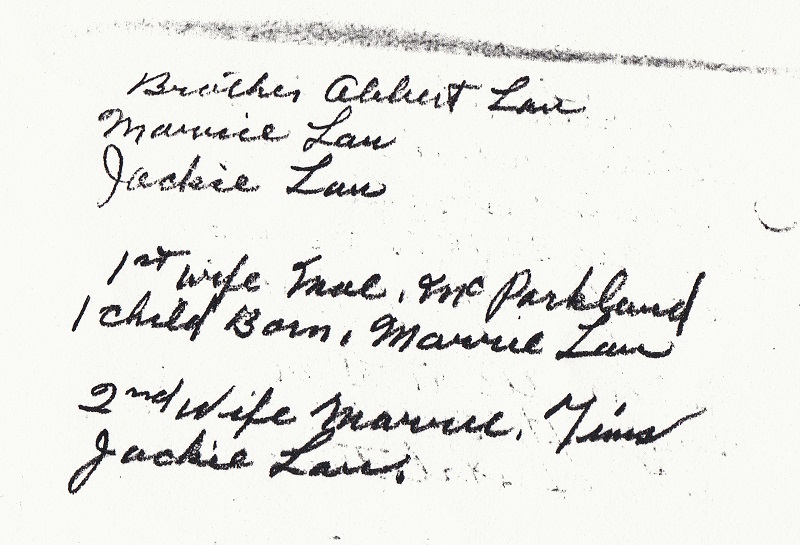 Brother Albert Law
Marvie Law
Jackie Law
1st wife Mae, Mc Parkland
1 child Born, Marvie Law
2nd Wife Marvie, Tims
Jackie Law.